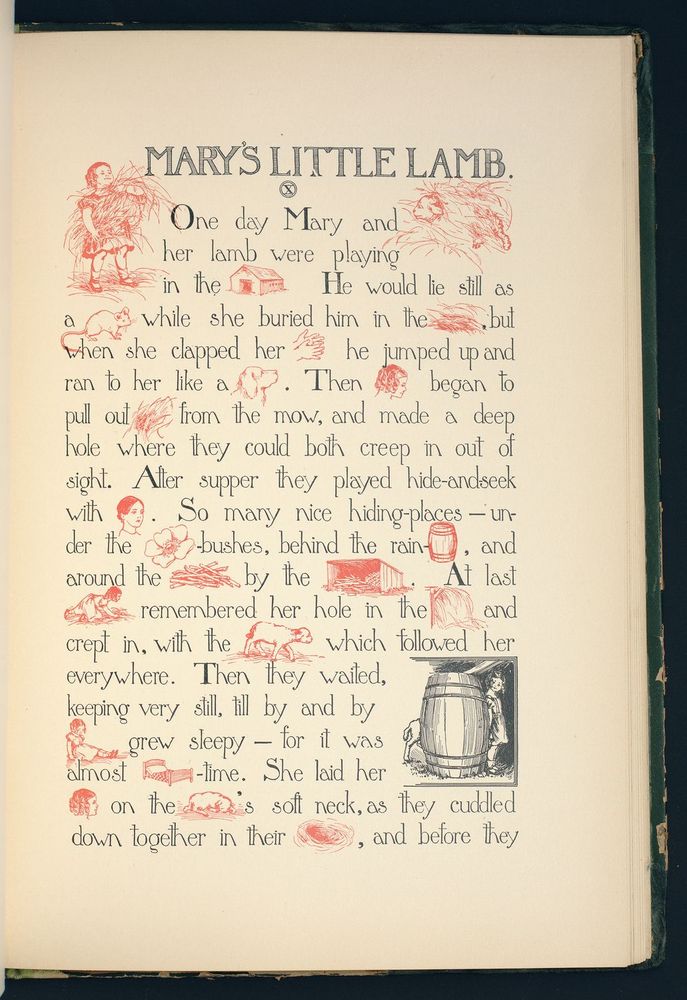 MARY'S LITTLE LAMB.
X
One day Mary and
her lamb were playing
in the He would lie still as
a while she buried him in the , but
when she clapped her he jumped up and
ran to her like a . Then began to
pull out from the mow, and made a deep
hole where they could both creep in out of
sight. After supper they played hide-and-seek
with . So many nice hiding-places — un-
der the -bushes, behind the rain- , and
around the by the . At last
remembered her hole in the and
crept in, with the which followed her
everywhere. Then they waited,
keeping very still, till by and by
grew sleepy — for it was
almost -time. She laid her
on the 's soft neck, as they cuddled
down together in their , and before they